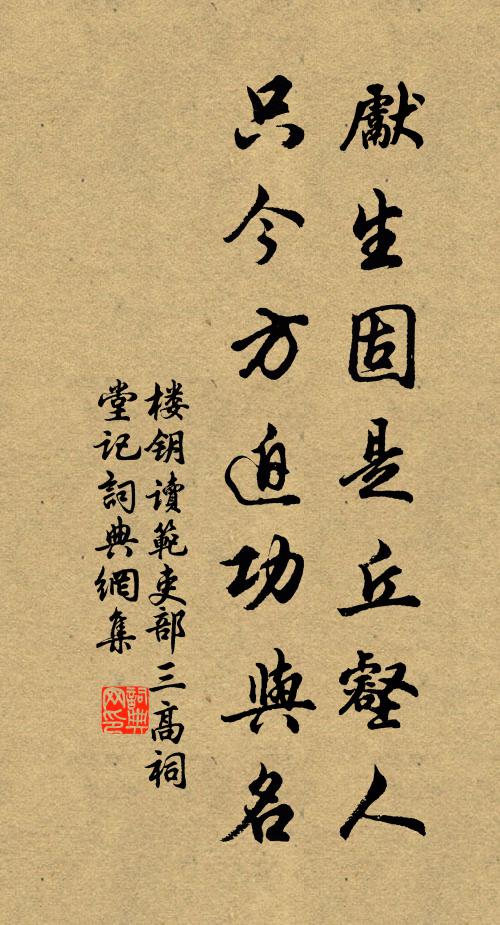 獻生固是丘壑人
只今方迫功與名
楼钥讀範吏部三高祠
堂记詞典網集
詞典
网印